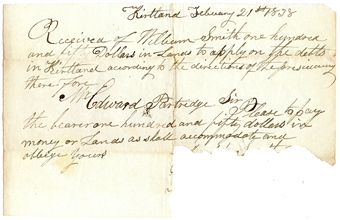 Kirtland Febuary 21st 1838
Received of William Smith one hundred
and fift Dollars in Lands to apply on the debts
in Kirtland acording to the directions of the
there fore
Mr Edward Partridge Sir Please to pay
the bearer one hundred and fifty dollars in
money or Lands as shall accommodate and
oblege yours